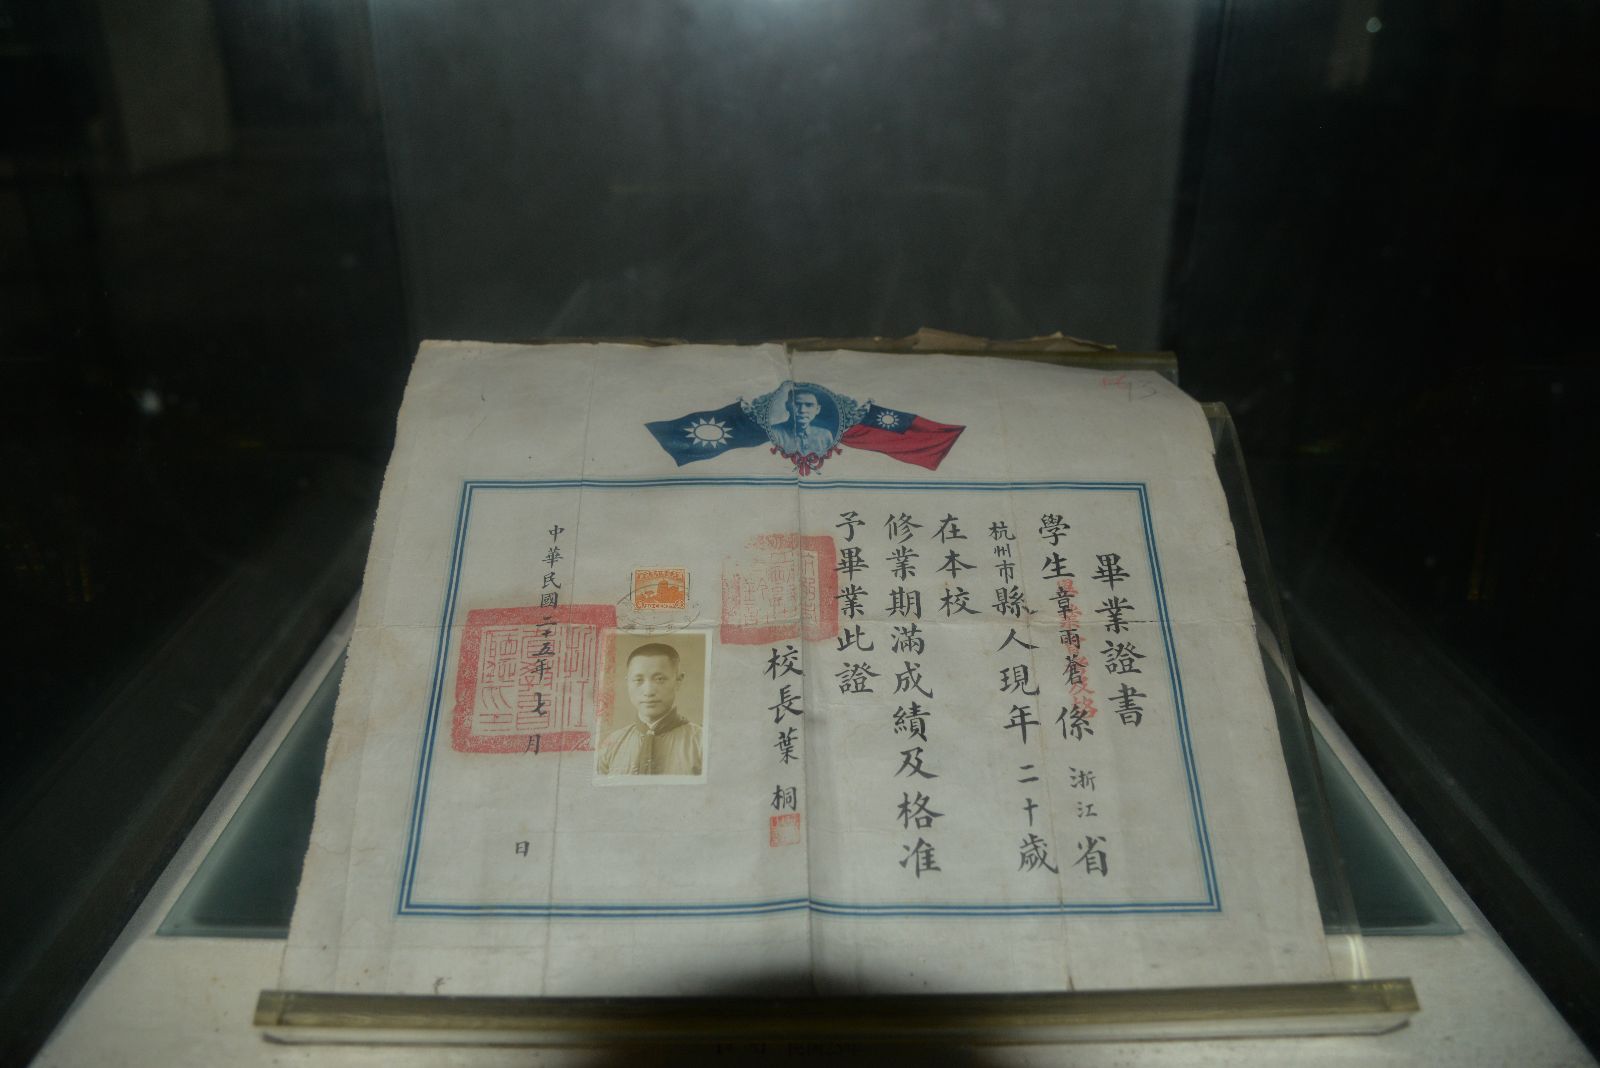 畢業證書
學生章雨蒼係浙江省
杭州市縣人現年二十歲
在本校
修業期滿成績及格准
予畢業此證
校長葉桐
中華民國二十五年七月日